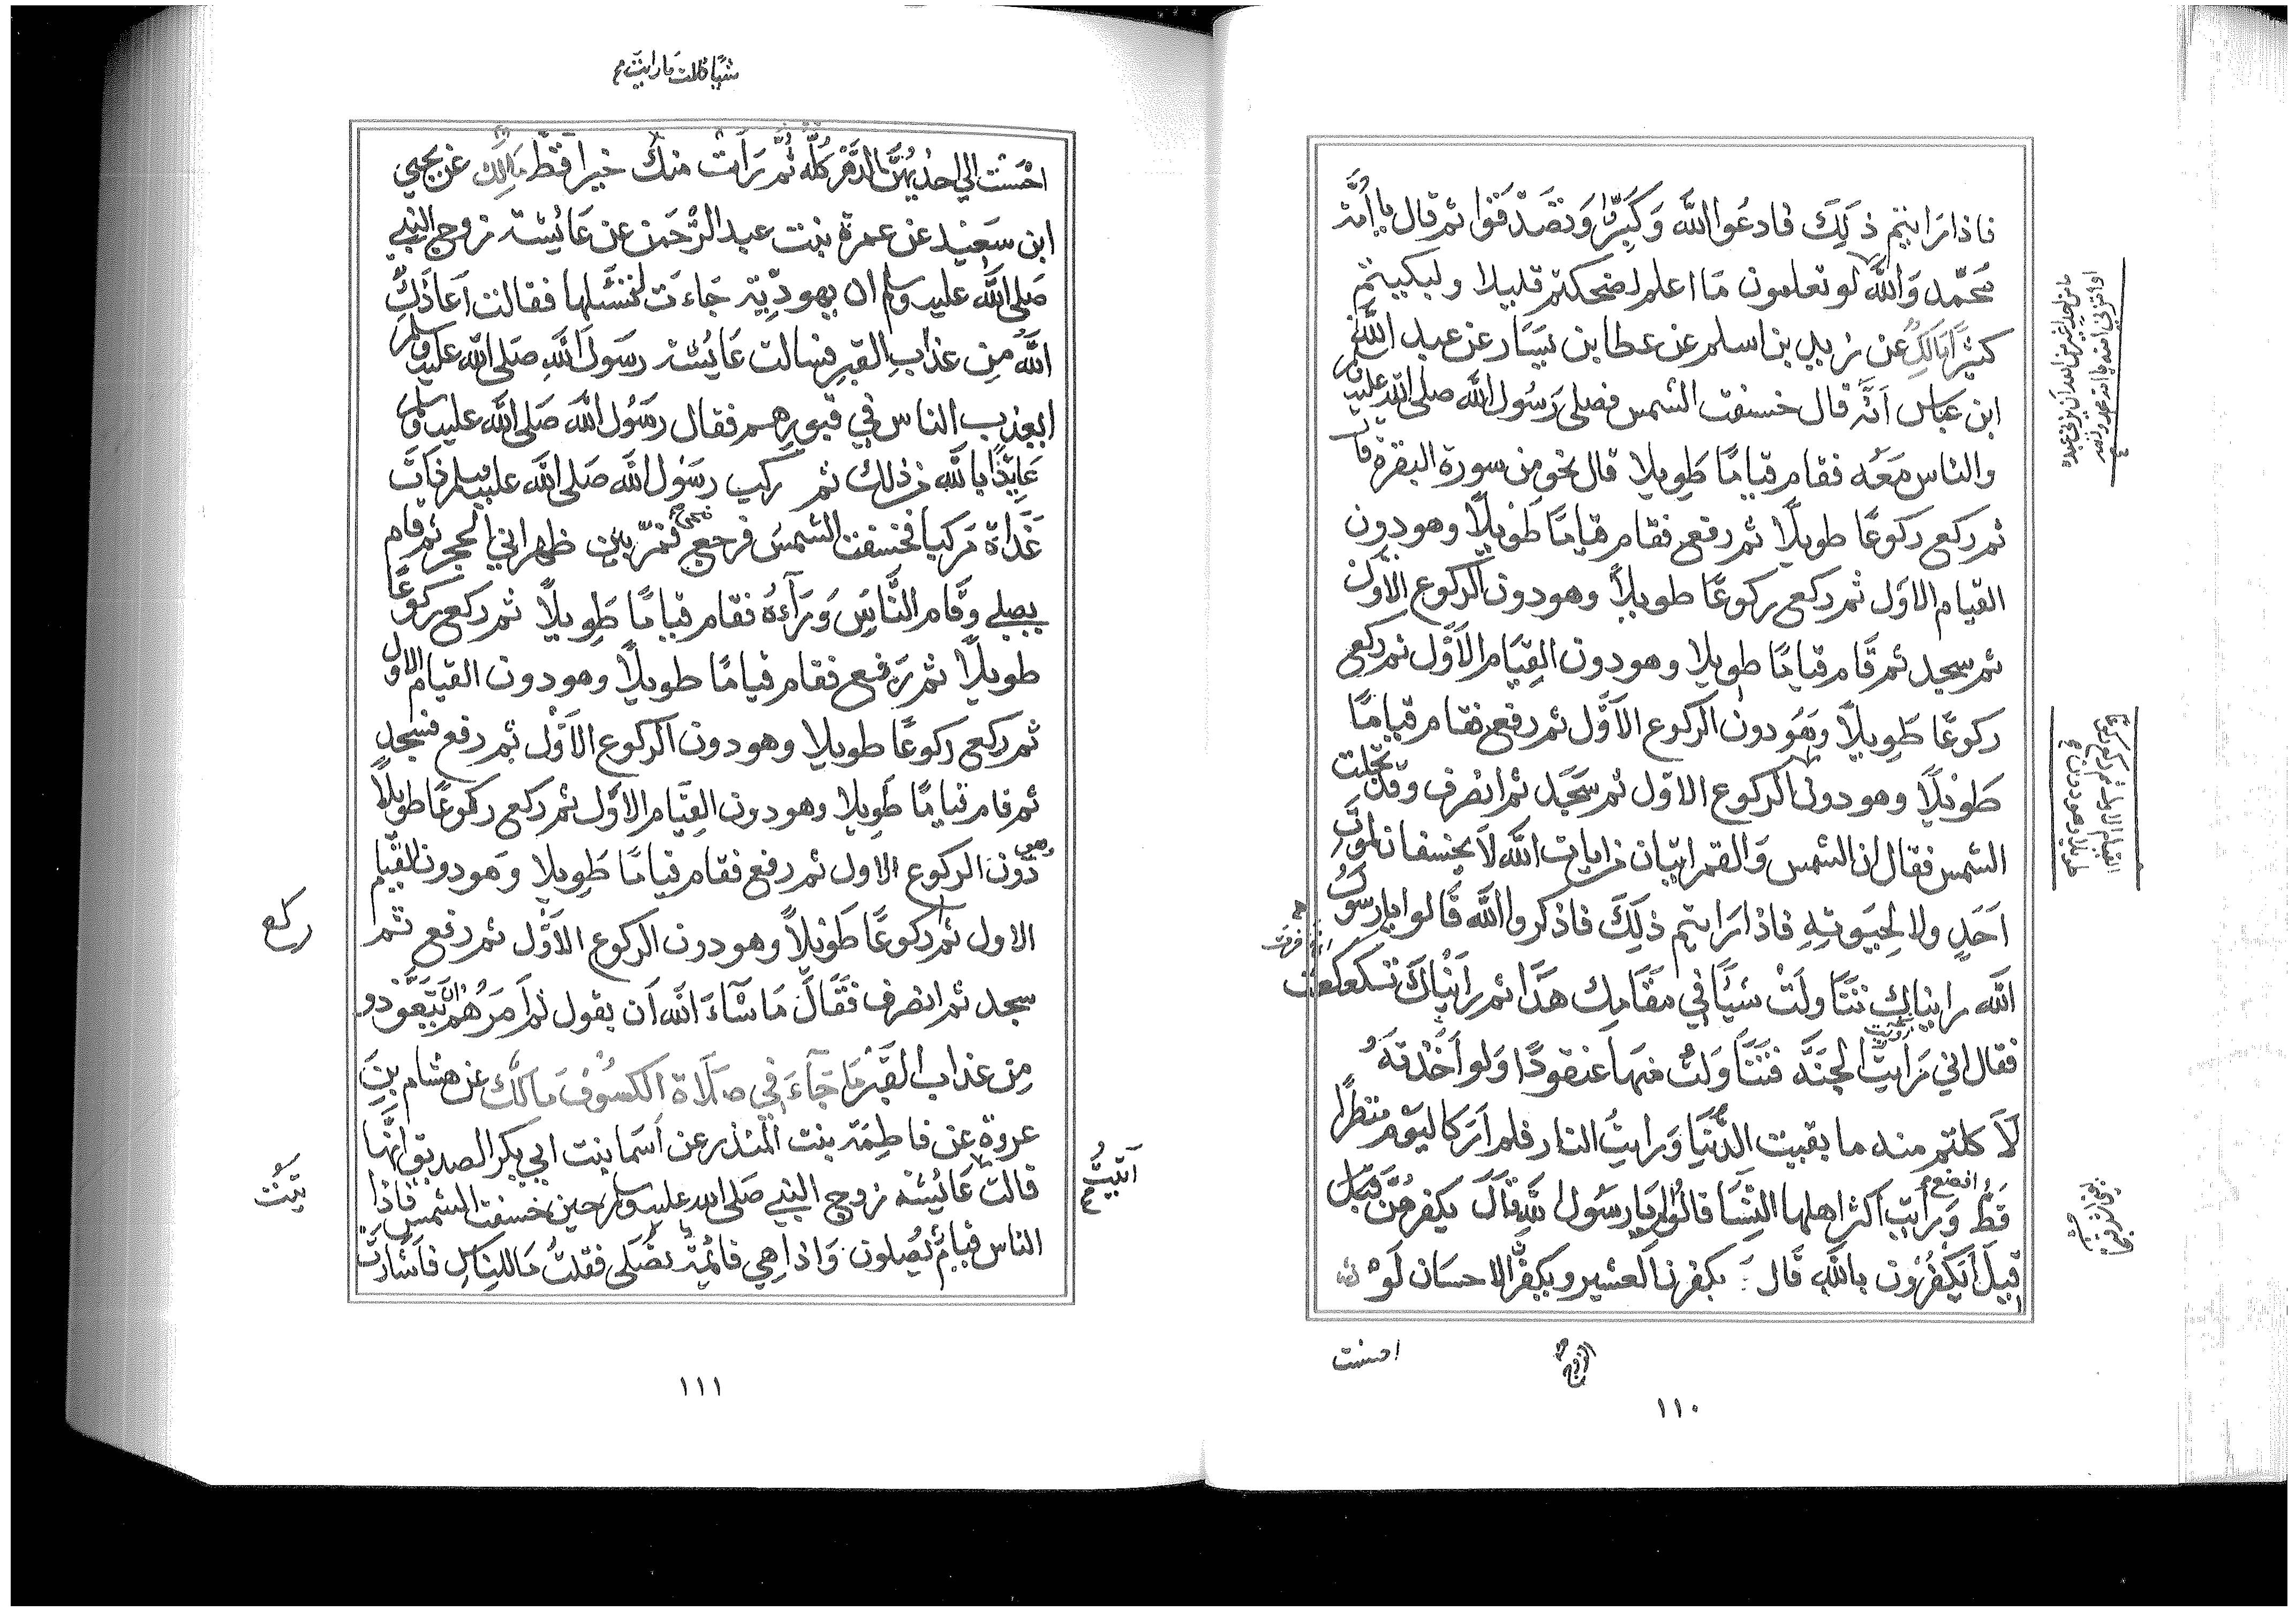 فاذا رايتم ذلك فادعوا الله وكبروا وتصدقوا ثم قال يا امة
محمد والله لو تعلمون ما اعلم لضحكتم قليلا ولبكيتم
كثيرًا مالك عن زيد بن اسلم عن عطا بن يسار عن عبد الله
ابن عباس انه قال خسفت الشمس فصلى رسول الله صلى الله عليه وسلم
والناس معه فقام قيامًا طويلا قال نحو من سورة البقرة قال
ثم ركع ركوعًا طويلًا ثم رفع فقام قيامًا طويلًا وهو دون
القيام الاول ثم ركع ركوعًا طويلًا وهو دون الركوع الاول
ثم سجد ثم قام قيامًا طويلا وهو دون القيام الاول ثم ركع
ركوعًا طويلًا وهو دون الركوع الاول ثم رفع فقام قيامًا
طويلًا وهو دون الركوع الاول ثم سجد ثم انصرف وقد تجلت
الشمس فقال ان الشمس والقمر ايتان من ايات الله لا يخسفان لموت
احد ولا لحيوته فاذا رايتم ذلك فاذكروا الله قالوا يا رسول
الله رايناك تناولت شيئًا في مقامك هذا ثم رايناك تكعكعت
فقال اني رايت الجنة فتناولت منها عنقودًا ولو اخذته
لاكلتم منه ما بقيت الدنيا ورايت النار فلم ار كاليوم منظرًا
قط ورايت اكثر اهلها النسا قالوا لم يا رسول الله قال بكفرهن قيل
قيل ايكفرون بالله قال يكفرن العشير ويكفرن الاحسان لو
احسنت
١١٠
شيًا قالت ما رايت
احسنت الى احديهن الدهر كله ثم رات منك خيرا قط مالك عن يحيي
ابن سعيد عن عمرة بنت عبد الرحمن عن عائشة زوج النبي
صلى الله عليه وسلم ان يهودية جاءت تسئلها فقالت اعاذك
الله من عذاب القبر فسالت عائشة رسول الله صلى الله عليه وسلم
ايعذب الناس في قبورهم فقال رسول الله صلى الله عليه وسلم
عايذًا بالله من ذلك ثم ركب رسول الله صلى الله عليه وسلم ذات
غداة مركبا فخسفت الشمس فرجع فمر بين ظهراني الحجر ثم قام
يصلي وقام الناس وراءه فقام قيامًا طويلًا ثم ركع ركوعًا
طويلًا ثم رفع فقام قيامًا طويلًا وهو دون القيام الاول
ثم ركع ركوعًا طويلا وهو دون الركوع الاول ثم رفع فسجد
ثم قام قيامًا طويلا وهو دون القيام الاول ثم ركع ركوعًا طويلًا
وهو دون الركوع الاول ثم رفع فقام قيامًا طويلا وهو دون القيام
الاول ثم ركوعًا طويلًا وهو دون الركوع الاول ثم رفع ثم
ركع
سجد ثم انصرف فقال ما شاء الله ان يقول ثم امرهم ان يتعوذوا
من عذاب القبر ما جاء في صلاة الكسوف مالك عن هشام بن
عروة عن فاطمة بنت المنذر عن اسما بنت ابي بكر الصديق انها
اتيت
قالت عائشة زوج النبي صلى الله عليه وسلم حين خسفت الشمس فاذا
الناس قيام يصلون واذا هي قائمة تصلى فقلت ما للناس فاشارت
١١١